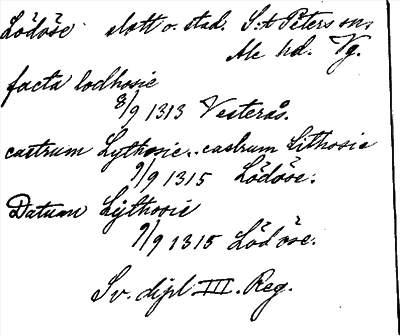 Lödöse slott o. stad. S:t Peters sn,
Ale hd. Vg.
facta lodhosie
8/9 1313 Vesterås.
castrum Lythosie.. castrum Lithosie
9/9 1315 Lödöse.
Datum Lÿthosie
9/9 1315 Lödöse.
Sv. dipl. III. Reg.